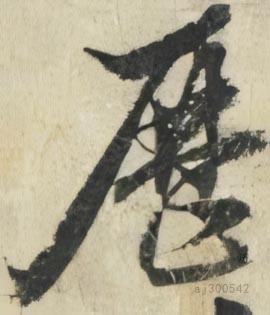 曆
aj300542